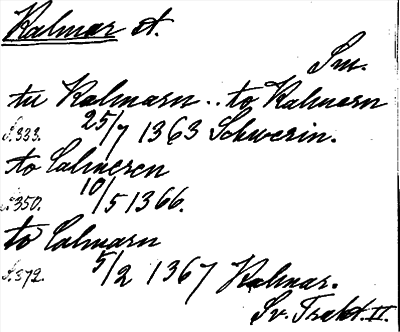 Kalmar st.
Sm.
tu Kalmarn .. to Kalmern
S.333. 25/7 1363 Schwerin.
to Calmeren
S.350. 10/5 1366.
to Calmarn
S.372. 5/2 1367 Kalmar.
Sv. Trakt. II.